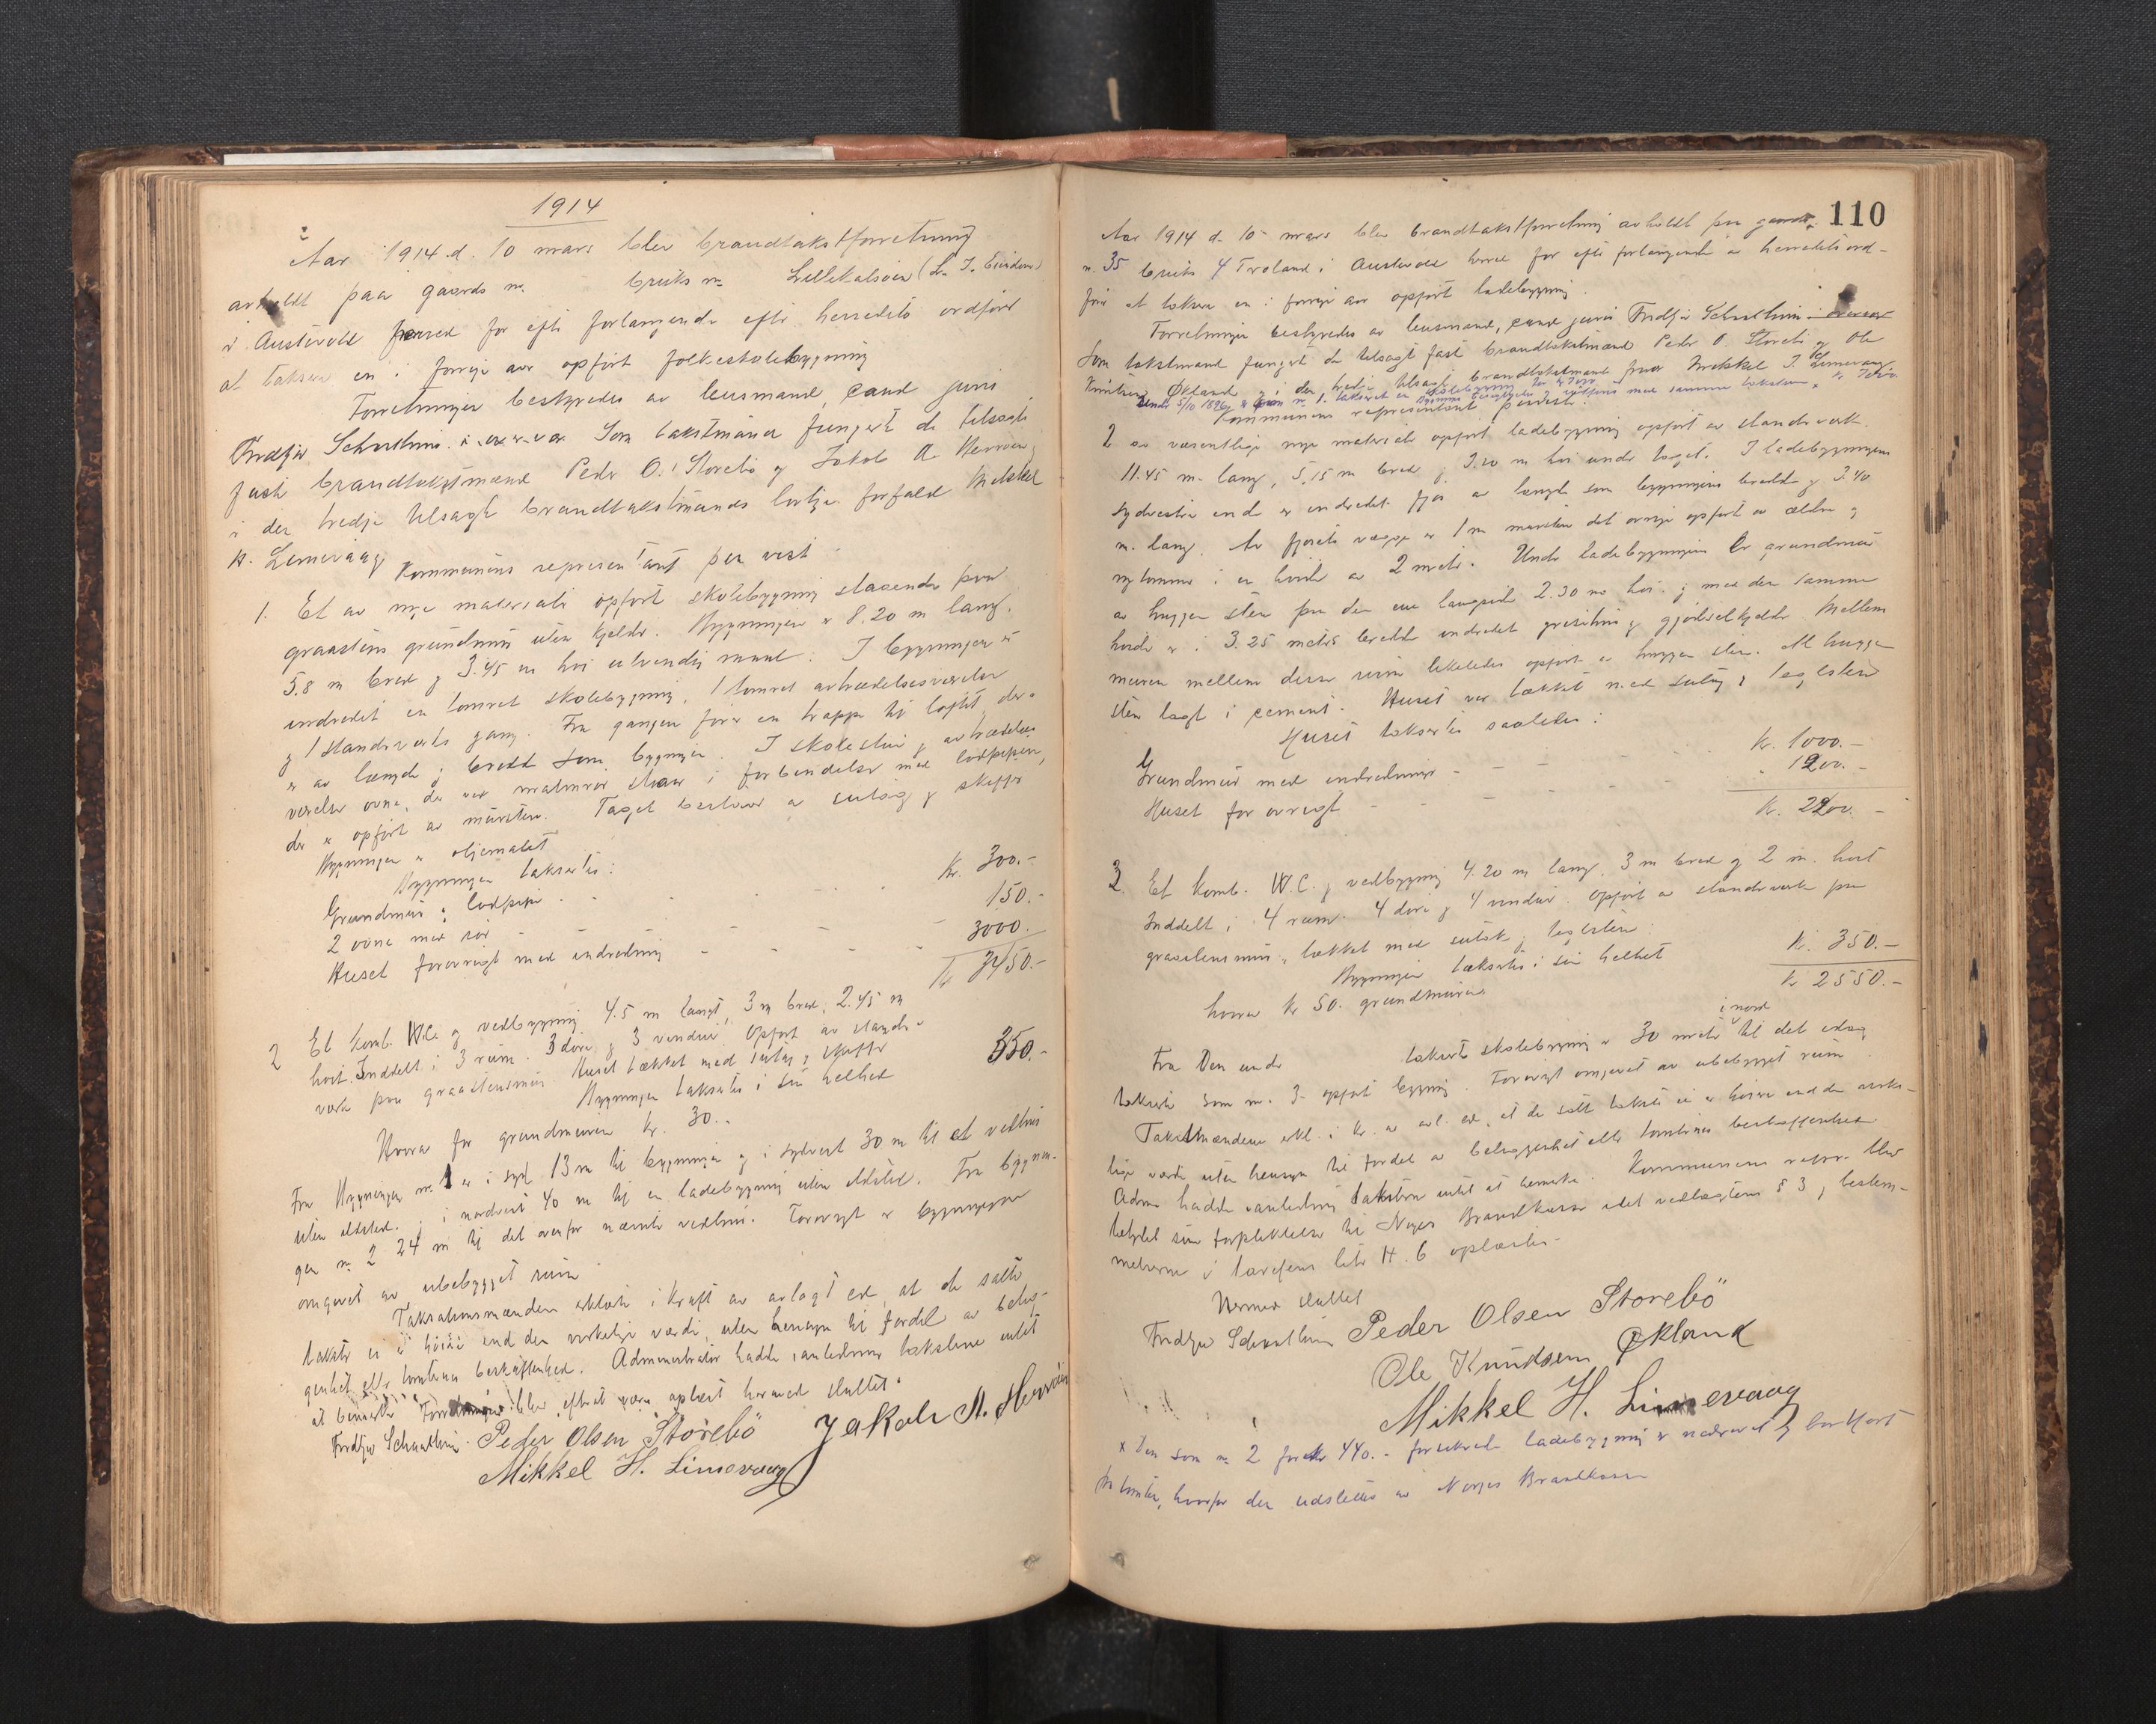 1914
Aar 1914 d. 10 mars blev brandtakstforretning
avholdt paa gaards no bruks no Lillekalsøen (L. J. Eiendom)
i Austevold herred for efter forlangende efter herredets ordfører
at taksere en i forrige aar opført folkeskolebygning
Forretningen bestyredes av lensmand, cand juris
Fridtjov Schustheim. Som takstmænd fungerte de tilsagte
faste brandtakstmænd Peder O. Storebø og Jakob A. Hevrøen
i den tredje tilsagte brandtakstmands lovlige forfald Mikkel
H. Limevaag
Kommunens representant paa vest
1. Et av nye materialer opført skolebygning staaende paa
graastens grundmur uten kjelder. Bygningen er 8.20 m lang.
5.8 m bred og 3.45 m høi utvendig maal. I bygningen er
indredet en tømret skolebygning, 1 tømret avtrædelsesværelse
og 1 standsverks gang. Fra gangen fører en trappe til loftet, der
er av længde og bredde som bygningen. I skolestue og avtrædelses
værelse ovne, der ved staar i forbindelse med lodpipen,
der er opført av mursten. Taget bestaar av sutag og skiffer
Bygningen er oljemalet
Bygningen takseres:
Grundmur og lodpipe Kr. 300.-
2 ovne med rør 150.-
Huset forøvrigt med indredning 3000.
Kr 3450.-
2 Et komb. W.C. og vedbygning 4.5 m langt, 3 m bred, 2.45 m
høit. Inddelt i 3 rum. 3 døre og 3 vinduer. Opført av stands-
verk paa graastensmur. Huset tækket med sutag og skiffer
Bygningen takseres i sin helhed 350.-
Hvorav for grundmuren kr. 30.-
Fra Bygningen no 1 er i syd 13 m til bygningen og i sydvest 30 m til et vedhus
uten ildsted. og i nordvest 40 m til en ladebygning uten ildsted. Fra bygnin-
gen no 2 24 m til det ovenfor nævnte vedhus. Forøvrigt er bygningerne
omgivet av ubebygget rum
Taksationsmændene erklærte i kraft av avlagt ed, at de satte
takster er ei høiere end den virkelige værdi, uten hensyn til fordel av belig-
genhet eller tomtens beskaffenhed. Administrator hadde i anledning takstene intet
at bemerke. Forretningen blev efter at være oplæst hermed sluttet.
Fridtjov Schustheim. Peder Olsen Storebö Jakob A. Hevrøen
Mikkel H. Limevaag
110
Aar 1914 d. 10 mars blev brandtakstforretning avholdt paa gaards-
n. 35 bruks 4 Troland i Austevold herred for efter forlangende av herredets ord-
fører at taksere en i forrige aar opført ladebygning.
Forretningen bestyredes av lensmand, cand juris Fridtjov Schustheim.
Som takstmænd fungerte de tilsagte faste brandtakstmænd Peder O. Storebø og Ole
Knutsen Økland og i den tredje tilsagte brandtakstmands fravær Mikkel H. Limevaag.
Under 5/10 1896 er som no 1. taksert en skolebygning
Kommunens representant
2 av væsentlige nye materialer opført ladebygning opført av standsverk.
11.45 m. lang, 5.15 m bred og 3.20 m høi under taget. I ladebygningens
sydvestre ende er indredet fjøs av længde som bygningens bredde og 3.40
m. lang. Av fjøsets vægge er 1 m mursten det øvrige opført av ældre og
ny tømmer i en høide av 2 meter. Under ladebygningen er grundmur
av huggen sten paa den ene langside 2.30 m høi og med den samme
høide er i 3.25 meters bredde indredet grisehus og gjødselkjelder. Mellem
muren mellem disse rum likeledes opført av huggen sten. Al huggen
sten lagt i cement. Huset var tækket med sutag og teglsten
Huset takseres saaledes:
Grundmur med indredning Kr. 1000.-
Huset for øvrigt 1200.-
Kr. 2200.-
3. Et komb. W.C. og vedbygning 4.20 m lang, 3 m bred og 2 m. høit
Inddelt i 4 rum. 4 døre og 4 vinduer. Opført av standsverk paa
graastensmur, tækket med sutak og teglsten.
Bygningen takseres i sin helhet Kr. 350.-
hvorav kr 50. grundmuren Kr 2550.-
Fra Den under takserte skolebygning er 30 meter i nord til det idag
takserte som no. 3 opført bygning. Forøvrigt omgivet av ubebygget rum
Takstmændene erkl. i kr. av avl. ed, at de satte takster ei er høiere end den virke-
lige værdi uten hensyn til fordel av beliggenhet eller tomtenes beskaffenhed
Adm. hadde i anledning takstene intet at bemerke. Kommunens repr. blev
betydet sin forpliktelse til Norges Brandkasse idet vedtægtens § 3, bestem-
melserne i tariffens litr H. 6 oplæstes.
Hermed sluttet
Fridtjov Schustheim Peder Olsen Storebö
Ole Knudsen Økland
Mikkel H. Limevaag
x Den som no 2 for kr 440.- forsikrede ladebygning er nedrevet og bortført
fra tomten, hvorfor den udslettes av Norges Brandkasse